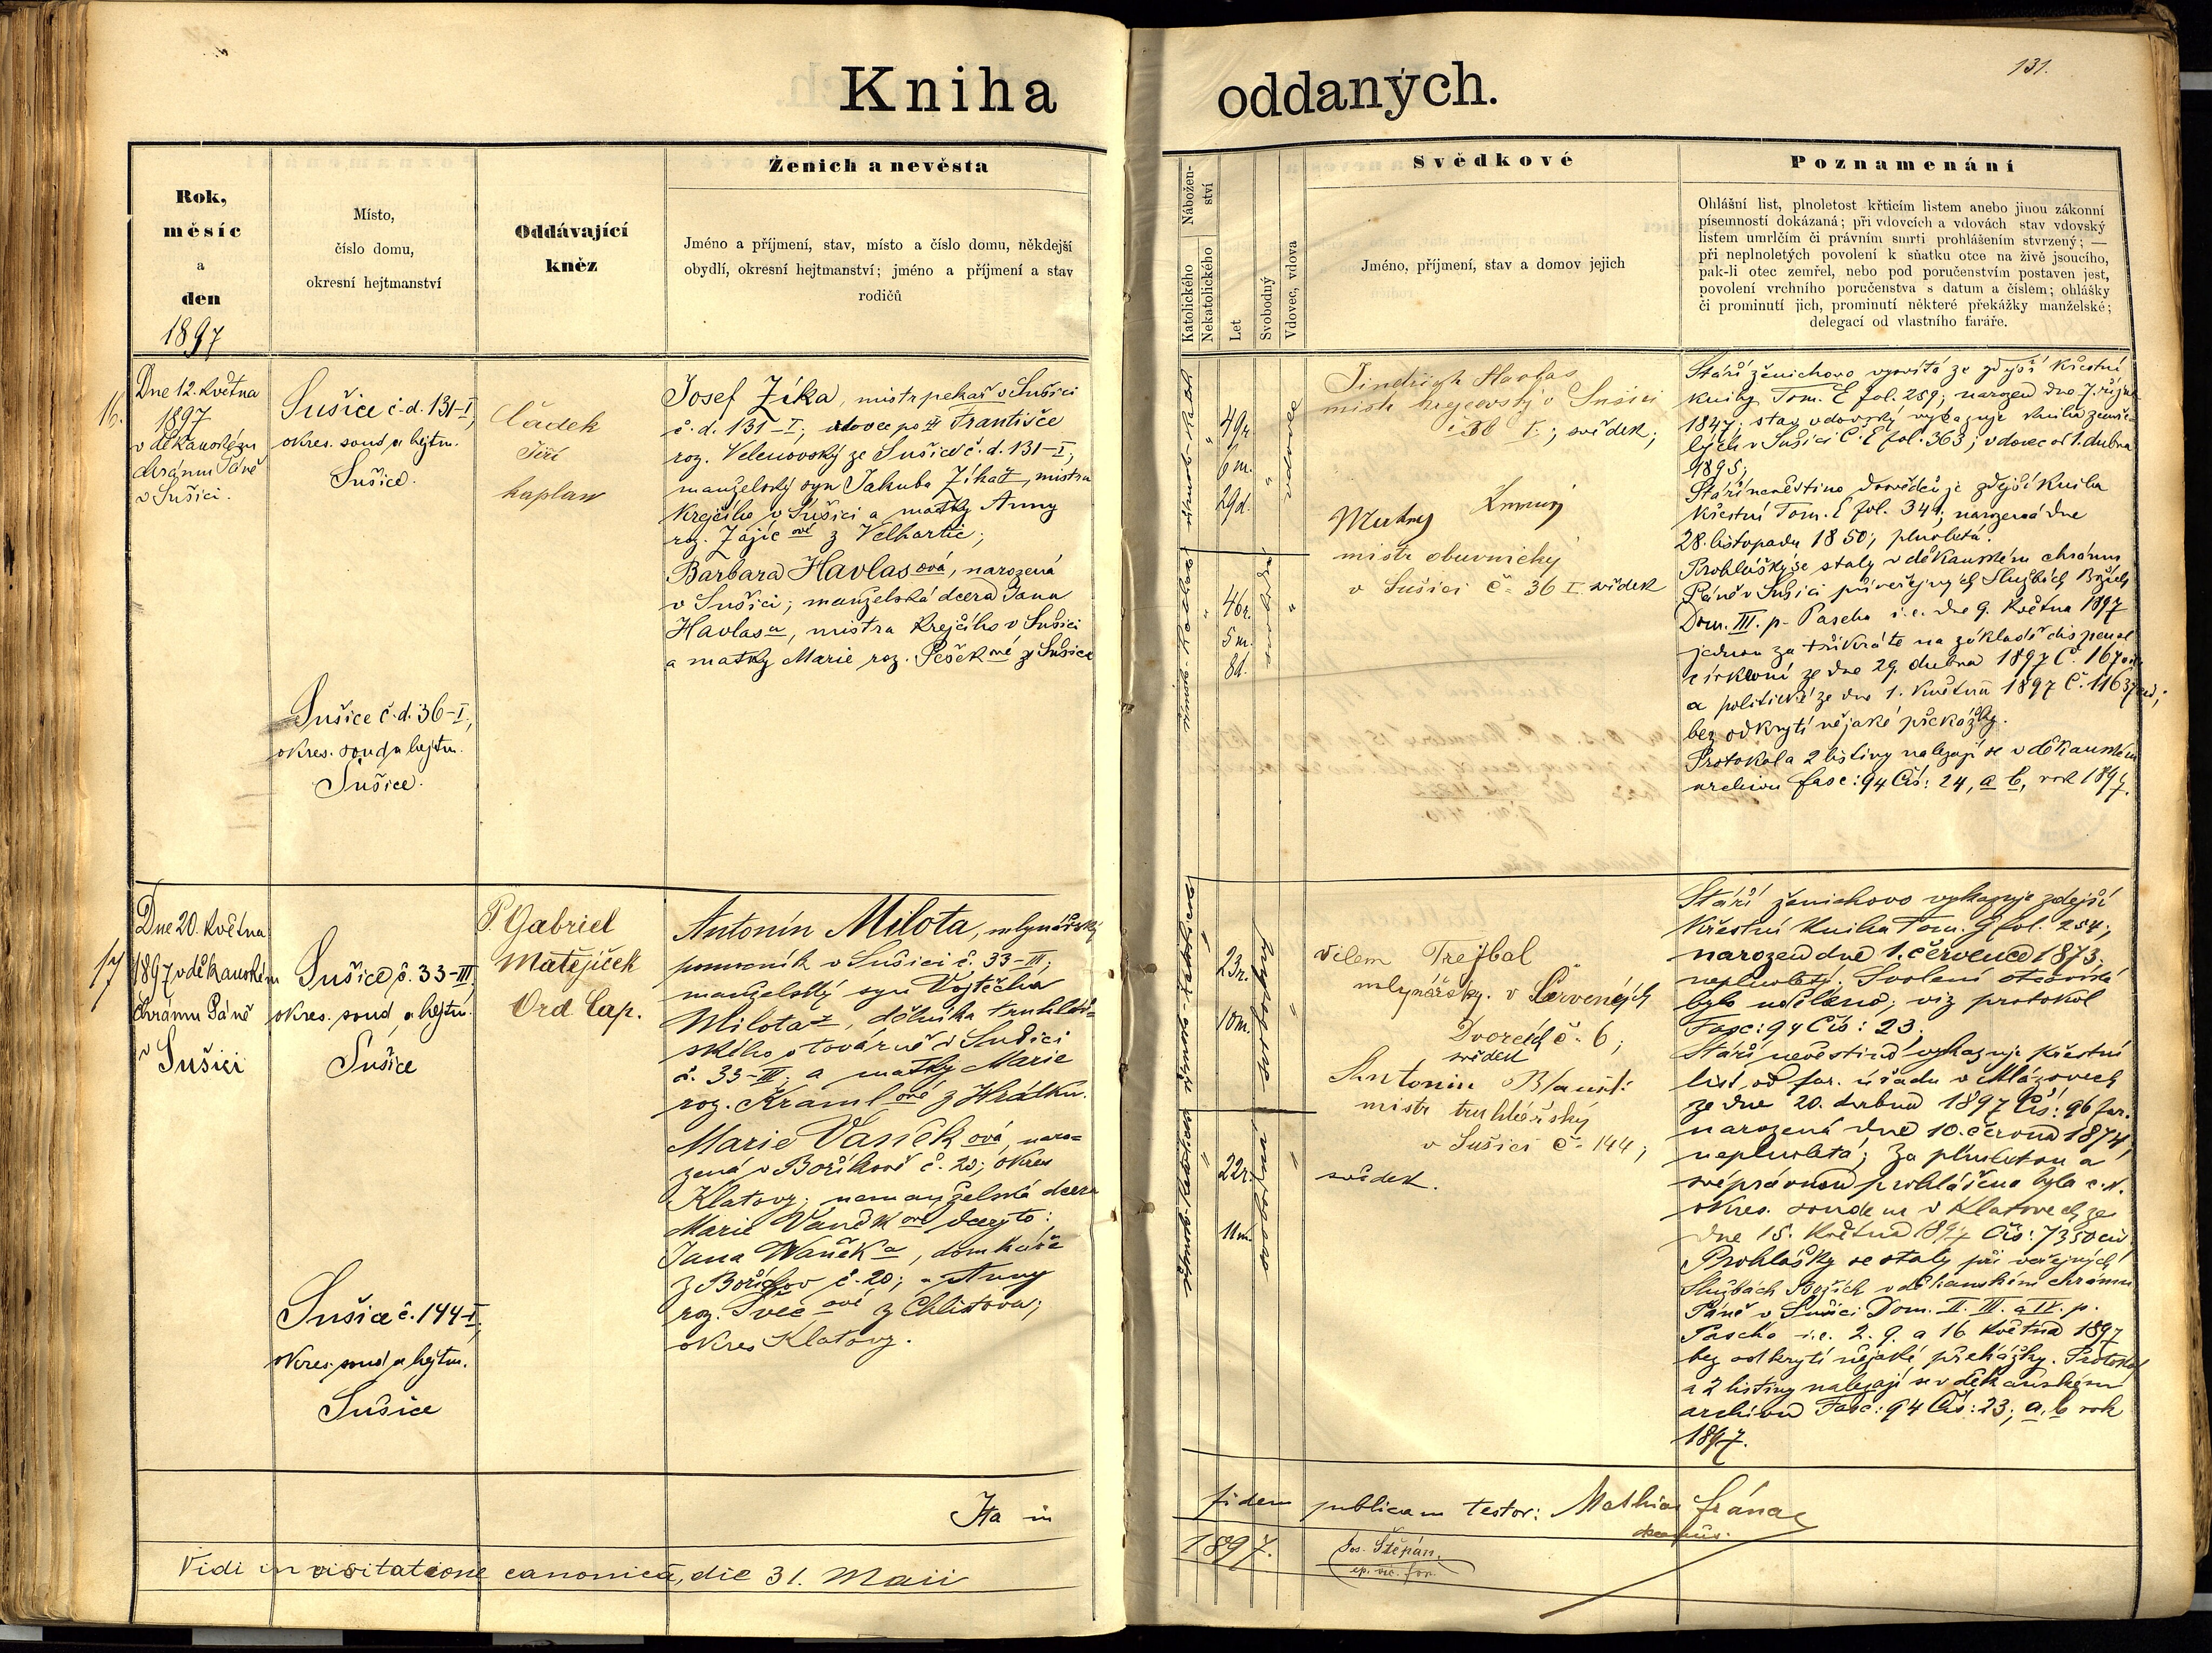 131.
Kniha oddaných.
Rok,
měsíc
a
den
1897
Místo,
číslo domu,
okresní hejtmanství
Oddávající
kněz
Ženich a nevěsta
Jméno a příjmení, stav, místo a číslo domu, někdejší
obydlí, okresní hejtmanství; jméno a příjmení a stav
rodičů
Nábožen-
ství
Katolického
Nekatolického
Let
Svobodný
Vdovec, vdova
Svědkové
Jméno, příjmení, stav a domov jejich
Poznamenání
Ohlášní list, plnoletost křticím listem anebo jinou zákonní
písemností dokázaná; při vdovcích a vdovách stav vdovský
listem umrlčím či právním smrti prohlášením stvrzený; —
při neplnoletých povolení k sňatku otce na živě jsoucího,
pak-li otec zemřel, nebo pod poručenstvím postaven jest,
povolení vrchního poručenstva s datum a číslem; ohlášky
či prominutí jich, prominutí některé překážky manželské;
delegací od vlastního faráře.
16.
Dne 12. května
1897
v děkanském
chrámu Páně
v Sušici.
Sušice č. d. 131-I,
okres. soud a hejtm.
Sušice.
Sušice č. d. 36-I;
okres. soud a hejtm.
Sušice.
Čádek
Jiří
kaplan
Josef Zíka, mistr pekař v Sušici
č. d. 131-I; vdovec po Františce
roz. Velenovský ze Sušice č. d. 131-I;
manželský syn Jakuba Zíka, mistra
krejčího v Sušici a matky Anny
roz. Zajíc ové z Velhartic;
Barbara Havlasová, narozená
v Sušici; manželská dcera Jana
Havlasa, mistra krejčího v Sušici
a matky Marie roz. Peškové z Sušice
49 r.
6 m.
29 d.
vdovec
46 r.
5 m.
8 d.
svobodná
Jindřich Havlas
mistr krejčovský v Sušici
I.; svědek;
mistr obuvnický
v Sušici č. 36 I. svědek
Stáří ženichovo vysvítá ze zdejší křestní
knihy Tom. E fol. 289; narozen dne 7. října
1847; stav vdovský vykazuje kniha zemře-
lých v Sušici C. E fol. 363; vdovec od 1. dubna
1895;
Stáří nevěstino dosvědčuje zdejší kniha
křestní Tom. E fol. 344; narozená dne
28. listopadu 1850; plnoletá.
Prohlášky se staly v děkanském chrámu
Páně v Sušici při veřejných Službách Božích
Dom. III. p. Pascha i. e. dne 9. května 1897
jednou za třikráte na základě dispense
církevní ze dne 29. dubna 1897 Č. 1670
a politické ze dne 1. května 1897 Č. 11637
bez odkrytí nějaké překážky.
Protokol a 2 listiny nalezají se v děkanském
archivu fasc: 94 Čís: 24, a b, rok 1897.
17
Dne 20. května
1897 v děkanském
chrámu Páně
v Sušici
Sušice č. 33-III
okres. soud a hejtm.
Sušice
Sušice č. 144-I,
okres. soud a hejtm.
Sušice
P. Gabriel
Matějíček
Ord Cap.
Antonín Milota, mlynářský
pomocník v Sušici č. 33-III;
manželský syn Vojtěcha
Miloty, dělníka truhlář-
ského v továrně v Sušici
č. 33-III; a matky Marie
roz. Kramlové z Hrádku.
Marie Vaněk ová, naro-
zená v Bořikově č. 20; okres
Klatovy; nemanželská dcera
Marie Vaněkové dcery to:
Jana Waněka, domkáře
z Bořikov č. 20; a Anny
roz. Švec ové z Chlistova;
okres Klatovy.
23 r.
10 m.
svobodný
22 r.
11 m.
svobodná
Vilem Trejbal
mlynářský. v Červených
Dvorcích č. 6;
svědek
Antonin Blaušt:
mistr truhlářský
v Sušici č. 144;
svědek.
Stáří ženichovo vykazuje zdejší
křestní kniha Tom. J fol. 254;
narozen dne 1. července 1873;
neplnoletý. Svolení otcovské
bylo uděleno; viz protokol
Fasc: 94 Čís: 23;
Stáří nevěstino vykazuje křestní
list od far. úřadu v Mlázovech
ze dne 20. dubna 1897 Čís: 96 far.
narozená dne 10. června 1874;
neplnoletá; Za plnoletou a
svéprávnou prohlášena byla c. k.
okres. soudem v Klatovech ze
dne 15. května 1897 Čís: 7350 civ.
Prohlášky se staly při veřejných
Službách Božích v děkanském chrámu
Páně v Sušici Dom. II. III. a IV. p.
Pascha i. e. 2. 9. a 16 května 1897
bez odkrytí nějaké překážky. Protokol
a 2 listiny nalezají se v děkanském
archivu Fasc: 94 Čís: 23; a, b rok
1897.
Ita in fidem publicam testor: Mathias
decanus.
Vidi in visitatione canonica, die 31. Maii 1897.
Jos. Štěpán,
ep. vic. for.